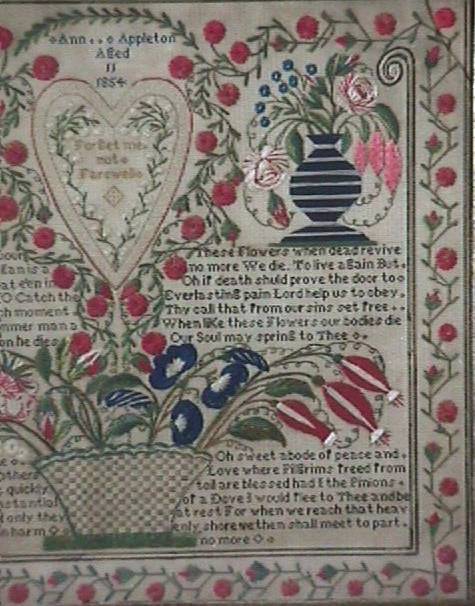 Ann Appleton
Aged
11
1854
Forget me
not
Farewell
These Flowers when dead revive
no more We die. To live again But
Oh if death shuld prove the door to
Everlasting pain Lord help us to obey
Thy call that from our sins set free
When like these Flowers our bodies die
Our Soul may spring to Thee
an is a
at e'en in
TO Catch the
ch moment
mmer man a
on he dies
Oh sweet abode of peace and
Love where Pilgrims freed from
toil are blessed had I the Pinions
of a Dove I would flee to Thee and be
at rest For when we reach that heav
enly shore we then shall meet to part
no more
others
quickly
nstantial
only they
harm